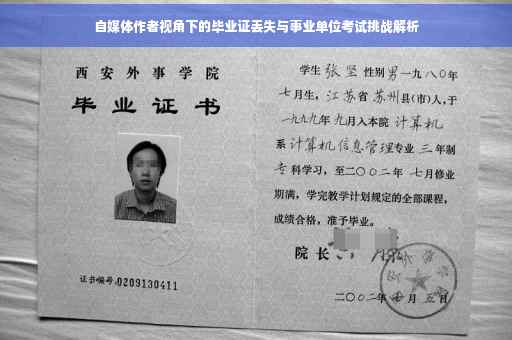 自媒体作者视角下的毕业证丢失与事业单位考试挑战解析
西安外事学院
毕业证书
证书编号:0209130411
学生 张坚 性别 男 一九八〇年
七月生, 江苏省 苏州县(市)人,于
一九九九年 九月入本院 计算机
系 计算机信息管理专业 三 年制
专科学习,至二〇〇二年 七月修业
期满,学完教学计划规定的全部课程,
成绩合格,准予毕业。
院长
二〇〇二年 月 五日